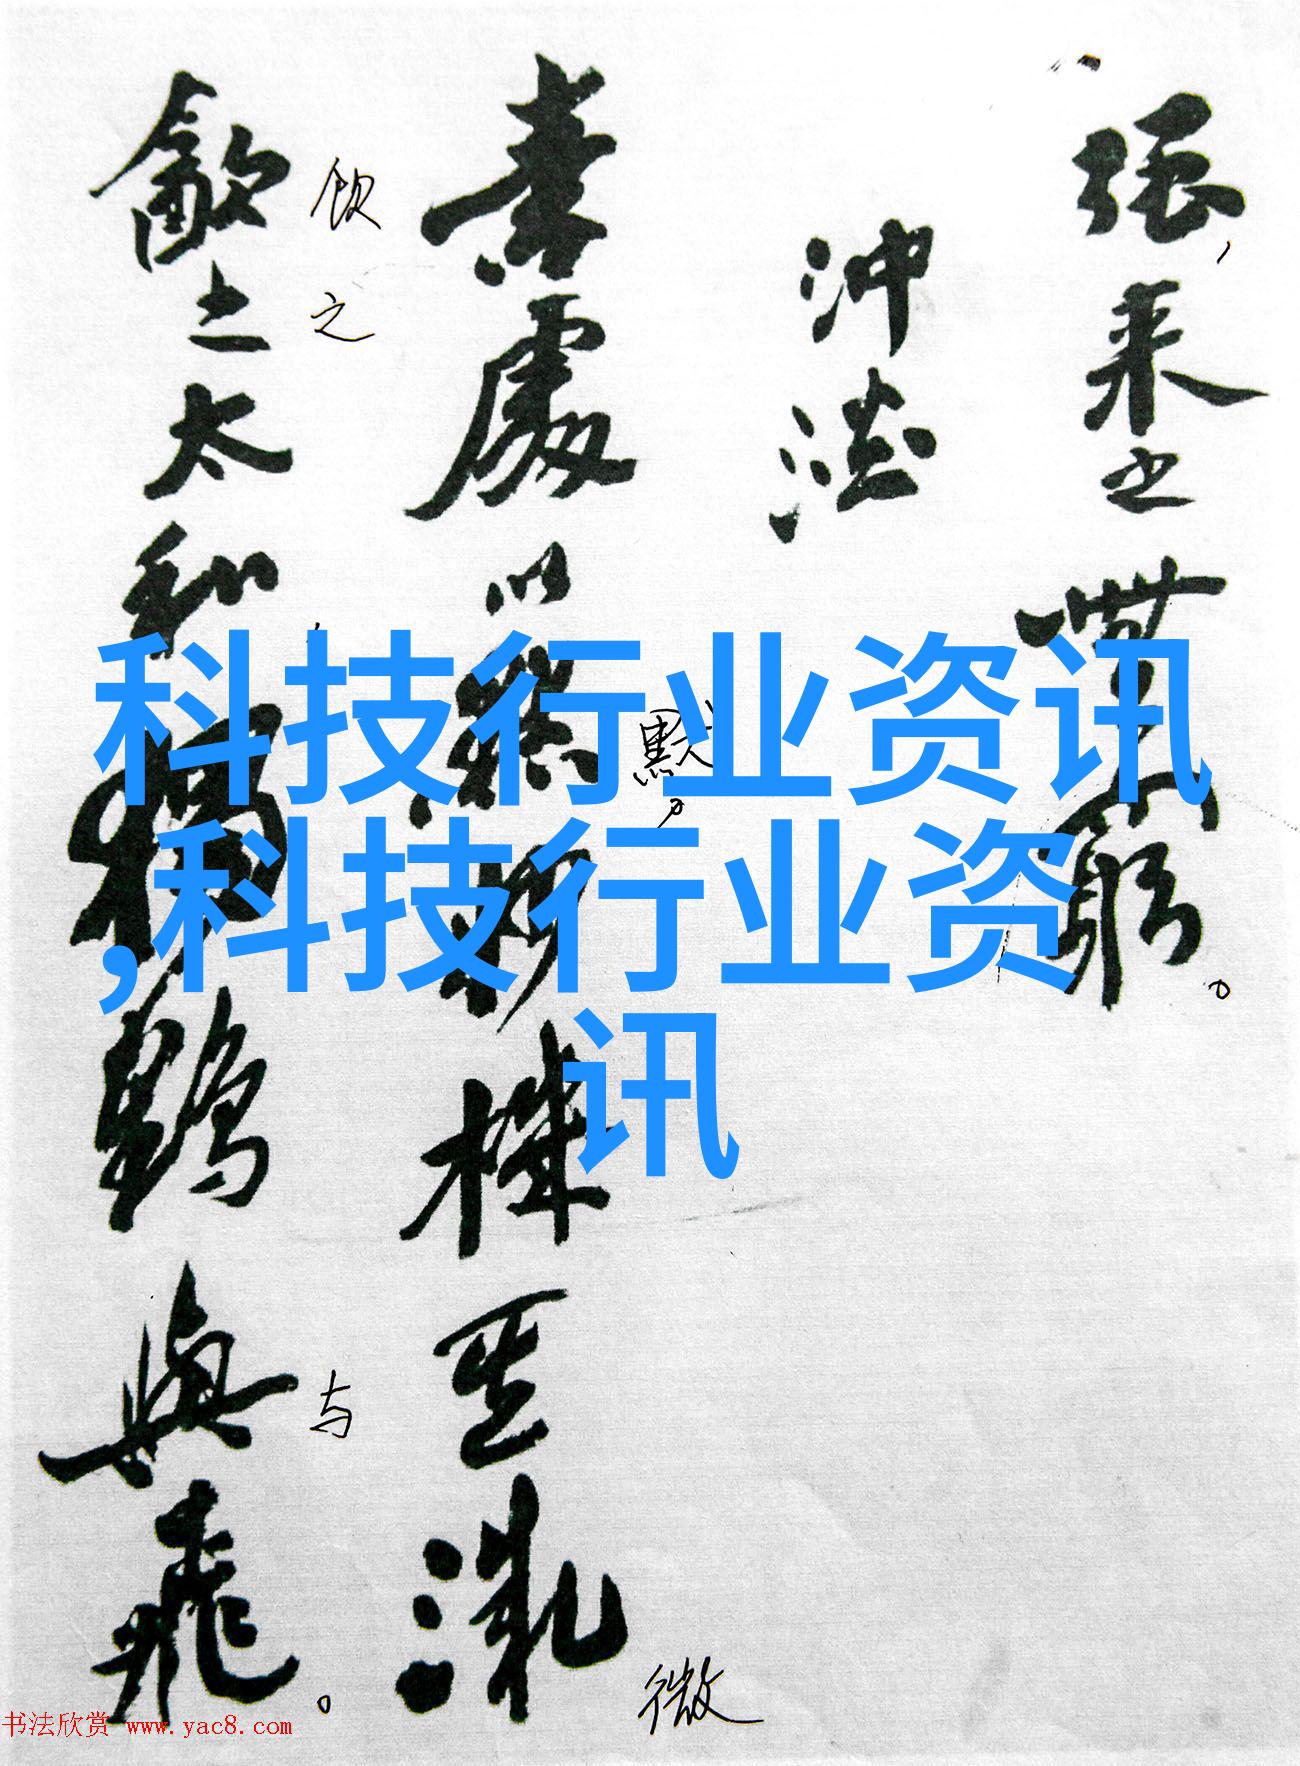 强，来之無窮。
沖淡
素處以默，妙機其微
微
歙之太和，獨鶴與飛。
饮之
与
科技行业资讯
,科技行业资
讯
书法欣赏 www.yac8.com